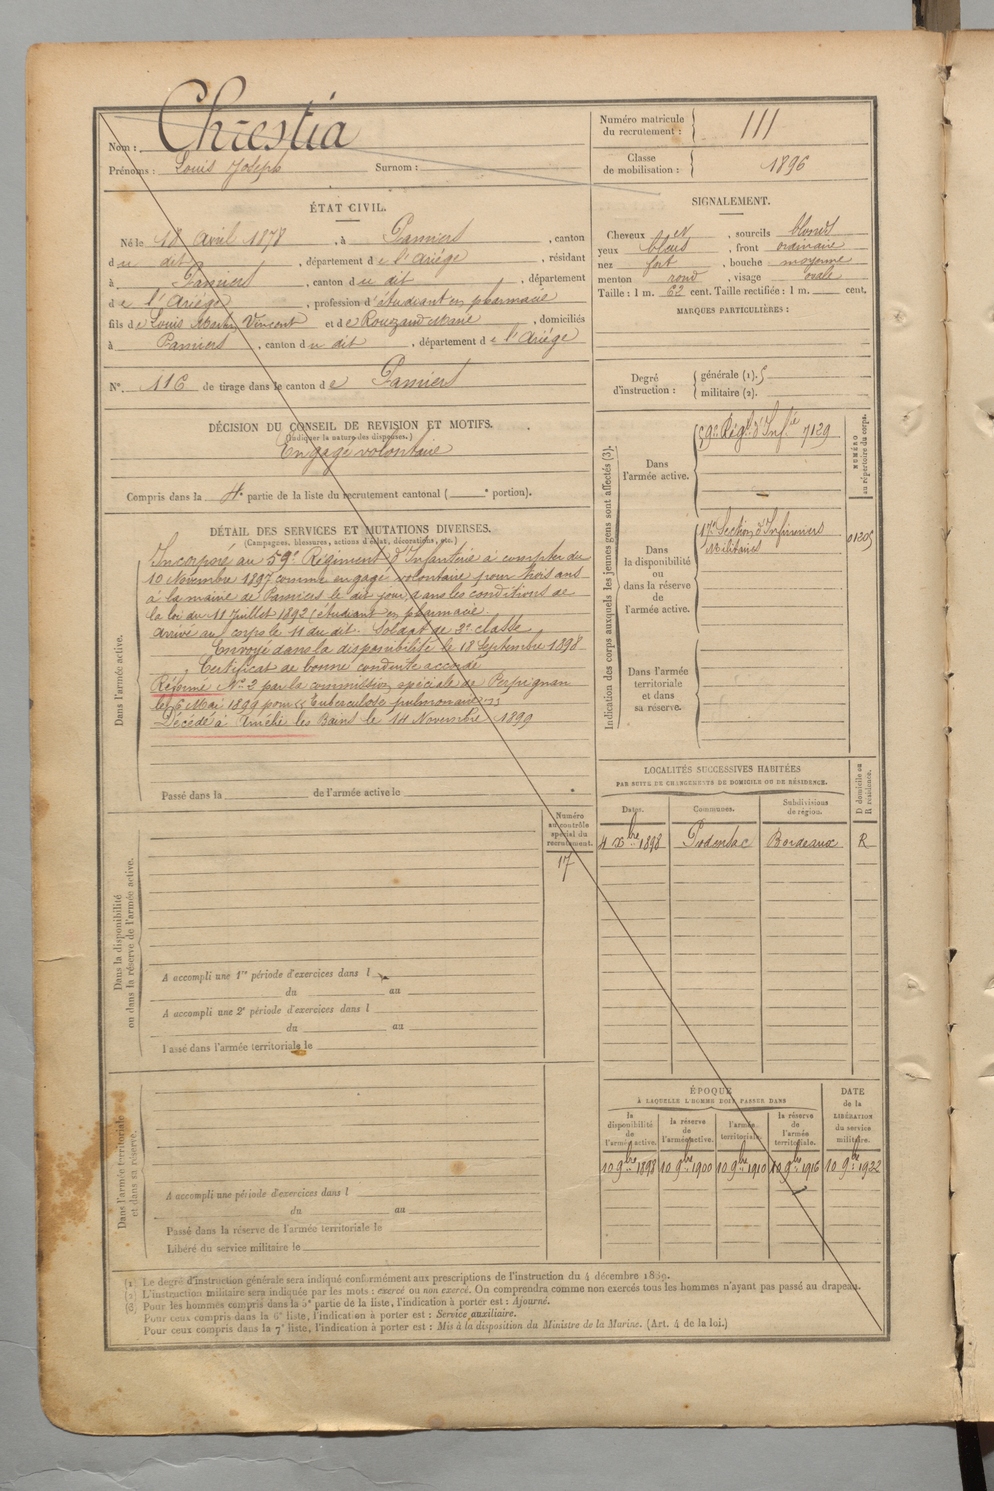 Nom : Chrestia
Prénoms : Louis Joseph Surnom :
Numéro matricule du recrutement : 111
Classe de mobilisation : 1896
ÉTAT CIVIL.
Né le 18 Avril 1878, à Pamiers, canton
du dit, département de l'Ariége, résidant
à Pamiers, canton du dit, département
de l'Ariége, profession d'étudiant en pharmacie
fils de Louis Vincent et de Rouzaud Marie, domiciliés
à Pamiers, canton du dit, département de l'Ariége
N° 116 de tirage dans le canton de Pamiers
SIGNALEMENT.
Cheveux et, sourcils blonds
yeux bleus, front ordinaire
nez fort, bouche moyenne
menton rond, visage ovale
Taille : 1 m. 62 cent. Taille rectifiée : 1 m. cent.
MARQUES PARTICULIÈRES :
Degré d'instruction : générale (1).
militaire (2).
DÉCISION DU CONSEIL DE REVISION ET MOTIFS.
(Indiquer la nature des dispenses.)
Engagé volontaire
Compris dans la 4e partie de la liste du recrutement cantonal ( e portion).
DÉTAIL DES SERVICES ET MUTATIONS DIVERSES.
(Campagnes, blessures, actions d'éclat, décorations, etc.)
Dans l'armée active.
Incorporé au 59e Régiment d'Infanterie à compter du
10 Novembre 1897 comme engagé volontaire pour trois ans
à la mairie de Pamiers le dit jour, dans les conditions de
la loi du 11 Juillet 1892 (étudiant en pharmacie.
Arrivé au corps le 11 du dit. Soldat de 2e classe
Envoyé dans la disponibilité le 18 Septembre 1898
Certificat de bonne conduite accordé
Réformé N° 2 par la commission spéciale de Perpignan
le 6 Mai 1899 pour "Tuberculose pulmonaire"
Décédé à Amélie les Bains le 14 Novembre 1899
Passé dans la de l'armée active le
Indication des corps auxquels les jeunes gens sont affectés (3).
Dans l'armée active.
59e Régt d'Infie 7129
NUMÉRO au répertoire du corps.
Dans la disponibilité ou dans la réserve de l'armée active.
17e Section d'Infirmiers
Militaires
01205
Dans l'armée territoriale et dans sa réserve.
LOCALITÉS SUCCESSIVES HABITÉES
PAR SUITE DE CHANGEMENTS DE DOMICILE OU DE RÉSIDENCE.
D domicile ou R résidence.
Dates. Communes. Subdivisions de région.
4 Xbre 1898 Podensac Bordeaux R
Numéro au contrôle spécial du recrutement.
17
Dans la disponibilité ou dans la réserve de l'armée active.
A accompli une 1re période d'exercices dans l
du au
A accompli une 2e période d'exercices dans l
du au
Passé dans l'armée territoriale le
ÉPOQUE
À LAQUELLE L'HOMME DOIT PASSER DANS
DATE de la LIBÉRATION du service militaire.
la disponibilité de l'armée active.
la réserve de l'armée active.
l'armée territoriale.
la réserve de l'armée territoriale.
10 9bre 1898 10 9bre 1900 10 9bre 1910 10 9bre 1916 10 9bre 1922
Dans l'armée territoriale et dans sa réserve.
A accompli une période d'exercices dans l
du au
Passé dans la réserve de l'armée territoriale le
Libéré du service militaire le
(1) Le degré d'instruction générale sera indiqué conformément aux prescriptions de l'instruction du 4 décembre 1889.
(2) L'instruction militaire sera indiquée par les mots : exercé ou non exercé. On comprendra comme non exercés tous les hommes n'ayant pas passé au drapeau.
(3) Pour les hommes compris dans la 5e partie de la liste, l'indication à porter est : Ajourné.
Pour ceux compris dans la 6e liste, l'indication à porter est : Service auxiliaire.
Pour ceux compris dans la 7e liste, l'indication à porter est : Mis à la disposition du Ministre de la Marine. (Art. 4 de la loi.)